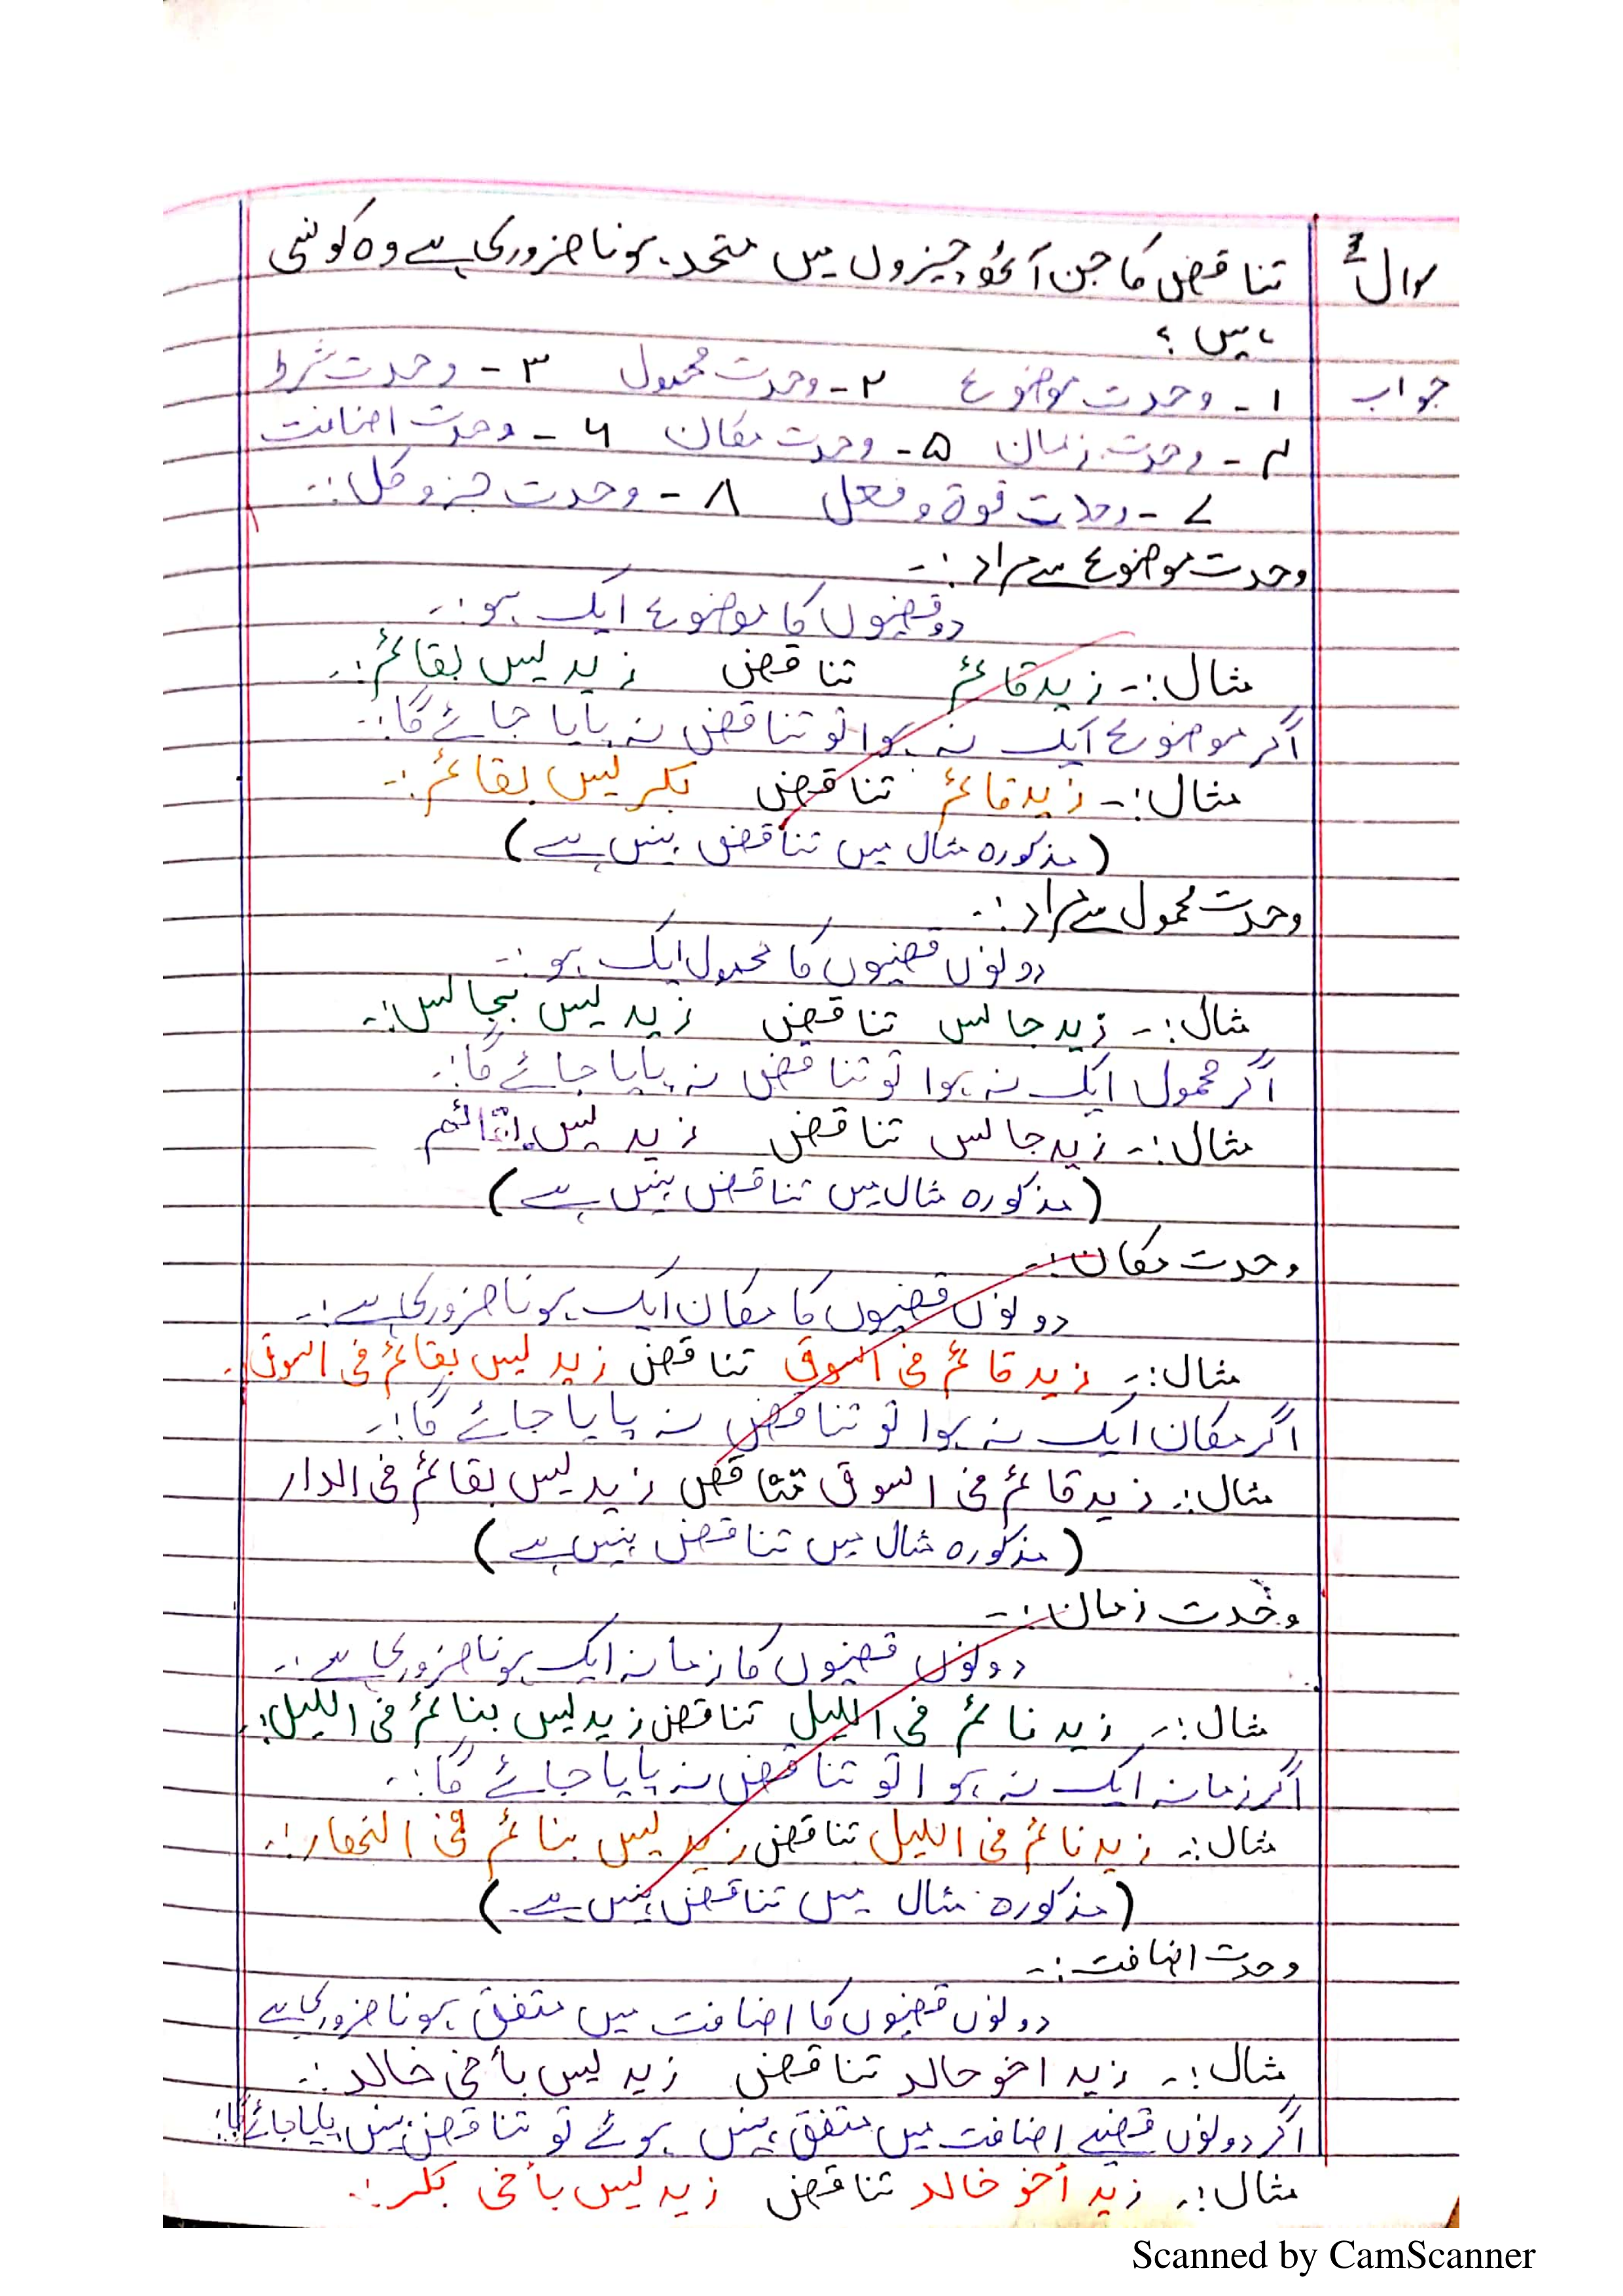 سوال تناقض کا جن آٹھ چیزوں میں متحد ہونا ضروری ہے وہ کونسی
ہیں ؟
جواب ۱ - وحدت موضوع ۲ - وحدت محمول ۳ - وحدت شرط
۴ - وحدت زمان ۵ - وحدت مکان ۶ - وحدت اضافت
۷ - وحدت قوۃ و فعل ۸ - وحدت جز و کل :-
وحدت موضوع سے مراد :-
دو قضیوں کا موضوع ایک ہو :-
مثال :- زید قائم تناقض زید لیس بقائم :-
اگر موضوع ایک نہ ہوا تو تناقض نہ پایا جائے گا :-
مثال :- زید قائم تناقض بکر لیس بقائم :-
(مذکورہ مثال میں تناقض نہیں ہے)
وحدت محمول سے مراد :-
دونوں قضیوں کا محمول ایک ہو :-
مثال :- زید جالس تناقض زید لیس بجالس :-
اگر محمول ایک نہ ہوا تو تناقض نہ پایا جائے گا :-
مثال :- زید جالس تناقض زید لیس
(مذکورہ مثال میں تناقض نہیں ہے)
وحدت مکان :-
دونوں قضیوں کا مکان ایک ہونا ضروری ہے :-
مثال :- زید قائم فی السوق تناقض زید لیس بقائم فی السوق -
اگر مکان ایک نہ ہوا تو تناقض نہ پایا جائے گا :-
مثال :- زید قائم فی السوق تناقض زید لیس بقائم فی الدار
(مذکورہ مثال میں تناقض نہیں ہے)
وحدت زمان :-
دونوں قضیوں کا زمانہ ایک ہونا ضروری ہے :-
مثال :- زید نائم فی اللیل تناقض زید لیس بنائم فی اللیل :-
اگر زمانہ ایک نہ ہوا تو تناقض نہ پایا جائے گا :-
مثال :- زید نائم فی اللیل تناقض زید لیس بنائم فی النھار :-
(مذکورہ مثال میں تناقض نہیں ہے -)
وحدت اضافت :-
دونوں قضیوں کا اضافت میں متفق ہونا ضروری ہے
مثال :- زید اخو خالد تناقض زید لیس بأخی خالد :-
اگر دونوں قضیے اضافت میں متفق نہیں ہوئے تو تناقض نہیں پایا جائے گا :-
مثال :- زید أخو خالد تناقض زید لیس بأخی بکر :-
Scanned by CamScanner